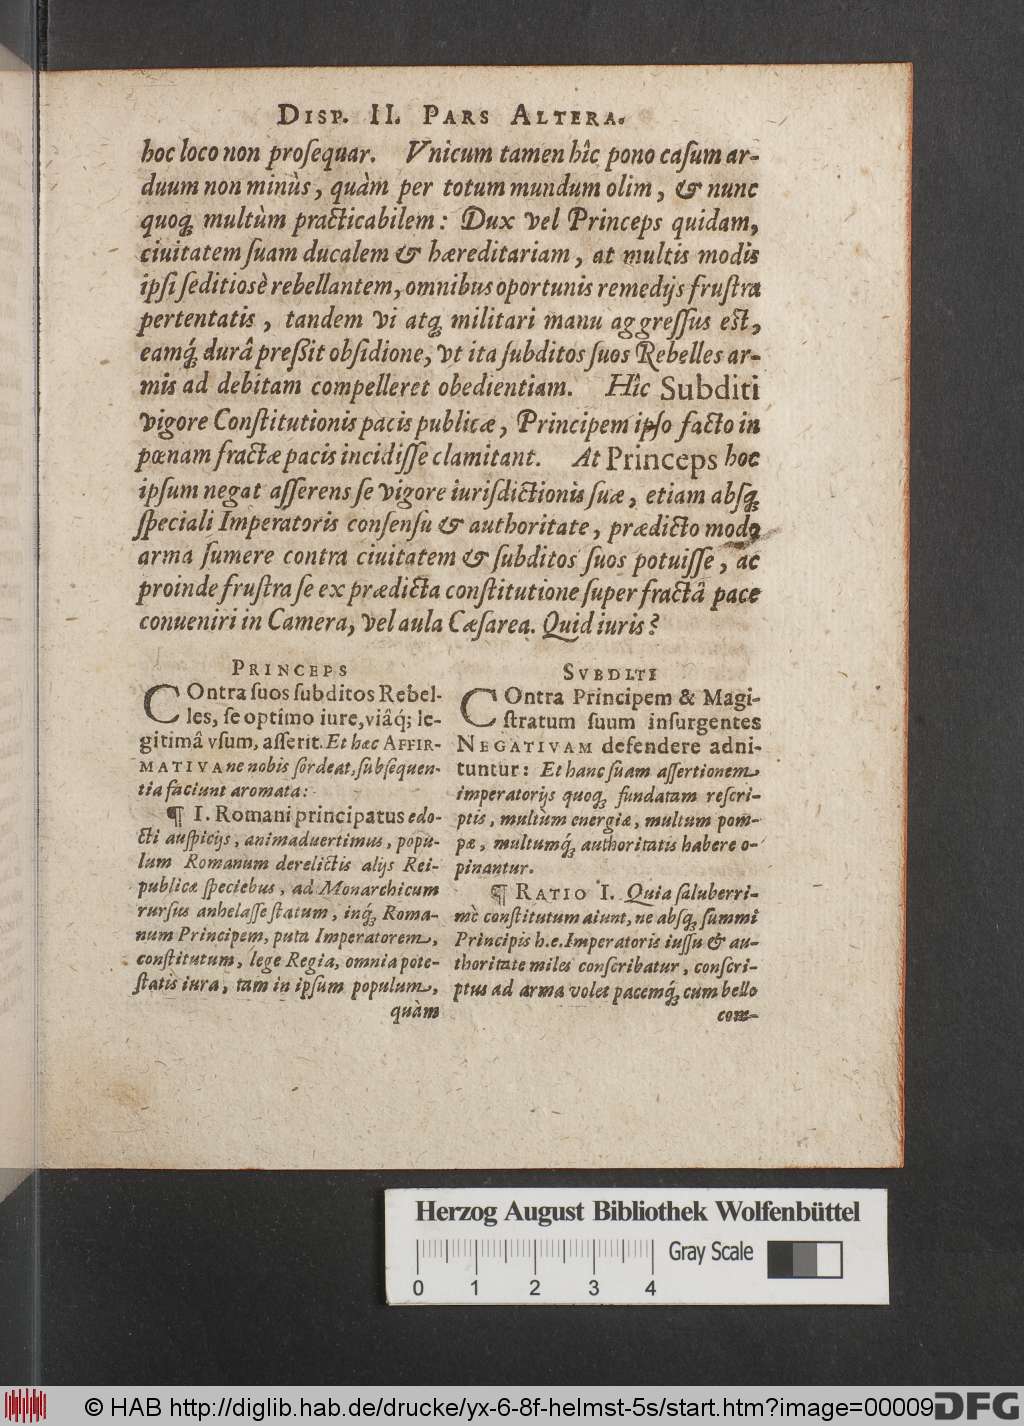 DISP. II. PARS ALTERA.
hoc loco non proſequar. Vnicum tamen hîc pono caſum ar-
duum non minùs, quàm per totum mundum olim, & nunc
quoq́ꝫ multùm practicabilem: Dux vel Princeps quidam,
ciuitatem ſuam ducalem & hæreditariam, at multis modis
ipſi ſeditiosè rebellantem, omnibus oportunis remedijs fruſtra
pertentatis, tandem vi atqꝫ militari manu aggreſſus eſt,
eamq́ꝫ durâ preßit obſidione, vt ita ſubditos ſuos Rebelles ar-
mis ad debitam compelleret obedientiam. Hîc Subditi
vigore Conſtitutionis pacis publicæ, Principem ipſo facto in
pœnam fractæ pacis incidiſſe clamitant. At Princeps hoc
ipſum negat aſſerens ſe vigore iurisdictionis ſuæ, etiam absqꝫ
ſpeciali Imperatoris conſenſu & authoritate, prædicto modo
arma ſumere contra ciuitatem & ſubditos ſuos potuiſſe, ac
proinde fruſtra ſe ex prædicta conſtitutione ſuper fractâ pace
conueniri in Camera, vel aula Cæſarea. Quid iuris?
PRINCEPS
COntra ſuos ſubditos Rebel-
les, ſe optimo iure, viâq́; le-
gitimâ vſum, aſſerit. Et hæc AFFIR-
MATIVA ne nobis ſordeat, ſubſequen-
tia faciunt aromata:
¶ I. Romani principatus edo-
cti auſpicijs, animaduertimus, popu-
lum Romanum derelictis alijs Rei-
publicæ ſpeciebus, ad Monarchicum
rurſus anhelaſſe ſtatum, inq́ꝫ Roma-
num Principem, puta Imperatorem,
conſtitutum, lege Regia, omnia pote-
ſtatis iura, tam in ipſum populum,
quàm
SVBDITI
COntra Principem & Magi-
ſtratum ſuum inſurgentes
NEGATIVAM defendere adni-
tuntur: Et hanc ſuam aſſertionem
imperatorijs quoqꝫ fundatam reſcri-
ptis, multùm energiæ, multum pom-
pæ, multumq́ꝫ authoritatis habere o-
pinantur.
¶ RATIO I. Quia ſaluberri-
mè conſtitutum aiunt, ne absqꝫ ſummi
Principis h.e. Imperatoris iuſſu & au-
thoritate miles conſcribatur, conſcri-
ptus ad arma volet pacemq́ꝫ cum bello
com-
Herzog August Bibliothek Wolfenbüttel
Gray Scale
0 1 2 3 4
© HAB http://diglib.hab.de/drucke/yx-6-8f-helmst-5s/start.htm?image=00009
DFG